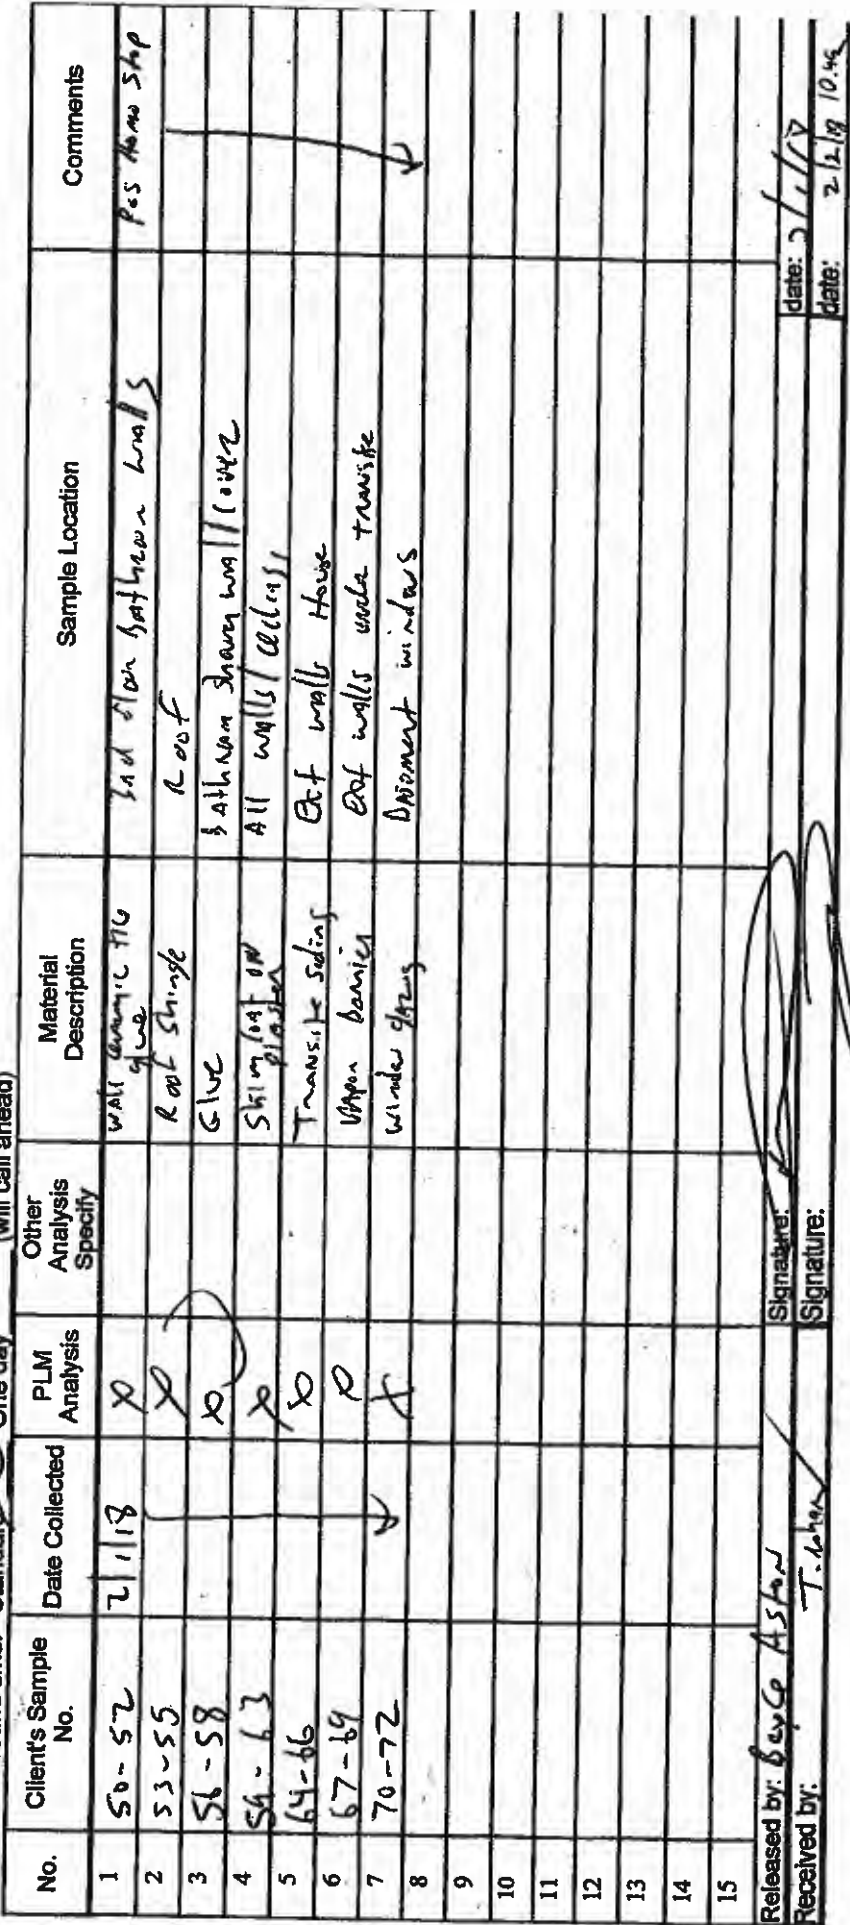 One day (will call ahead)
No. Client's Sample No. Date Collected PLM Analysis Other Analysis Specify Material Description Sample Location Comments
1 50-52 2/1/18 X Wall ceramic tile glue 2nd floor bathroom walls Pos Homo Stop
2 53-55 X Roof Shingle Roof
3 56-58 X Glue Bathroom shower wall cover
4 59-63 X Skim coat on plaster All walls/ceilings
5 64-66 X Transite siding Ext walls House
6 67-69 X Vapor barrier Ext walls under transite
7 70-72 X Window glazing Basement windows
8
9
10
11
12
13
14
15
Released by: Bryce Aston Signature: date: 2/1/18
Received by: Signature: date: 2/2/18